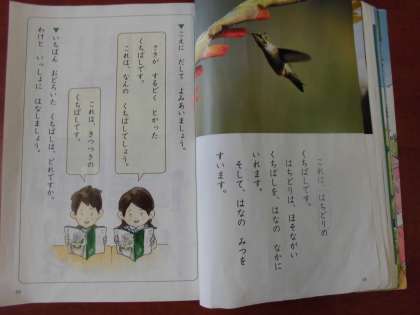 これは、はちどりの
くちばしです。
はちどりは、ほそながい
くちばしを、はなの なかに
いれます。
そして、はなの みつを
すいます。
▼こえに だして よみあいましょう。
さきが するどく とがった
くちばしです。
これは、なんの くちばしでしょう。
これは、きつつきの
くちばしです。
▼いちばん おどろいた くちばしは、どれですか。
わけと いっしょに はなしましょう。